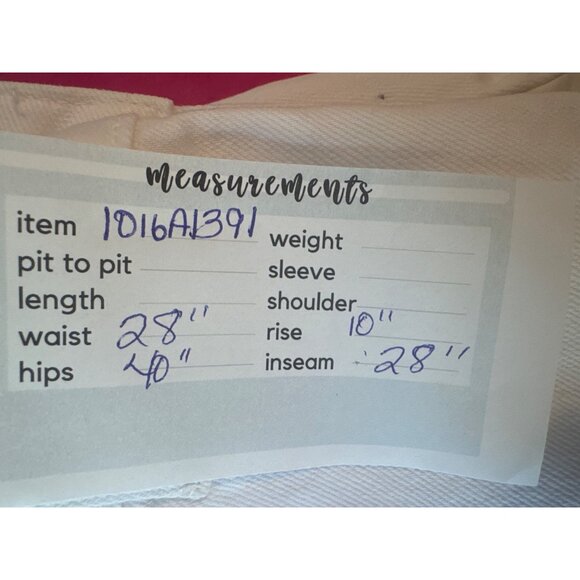 measurements
item 1016A1391
pit to pit
length
waist 28"
hips 40"
weight
sleeve
shoulder
rise 10"
inseam 28"